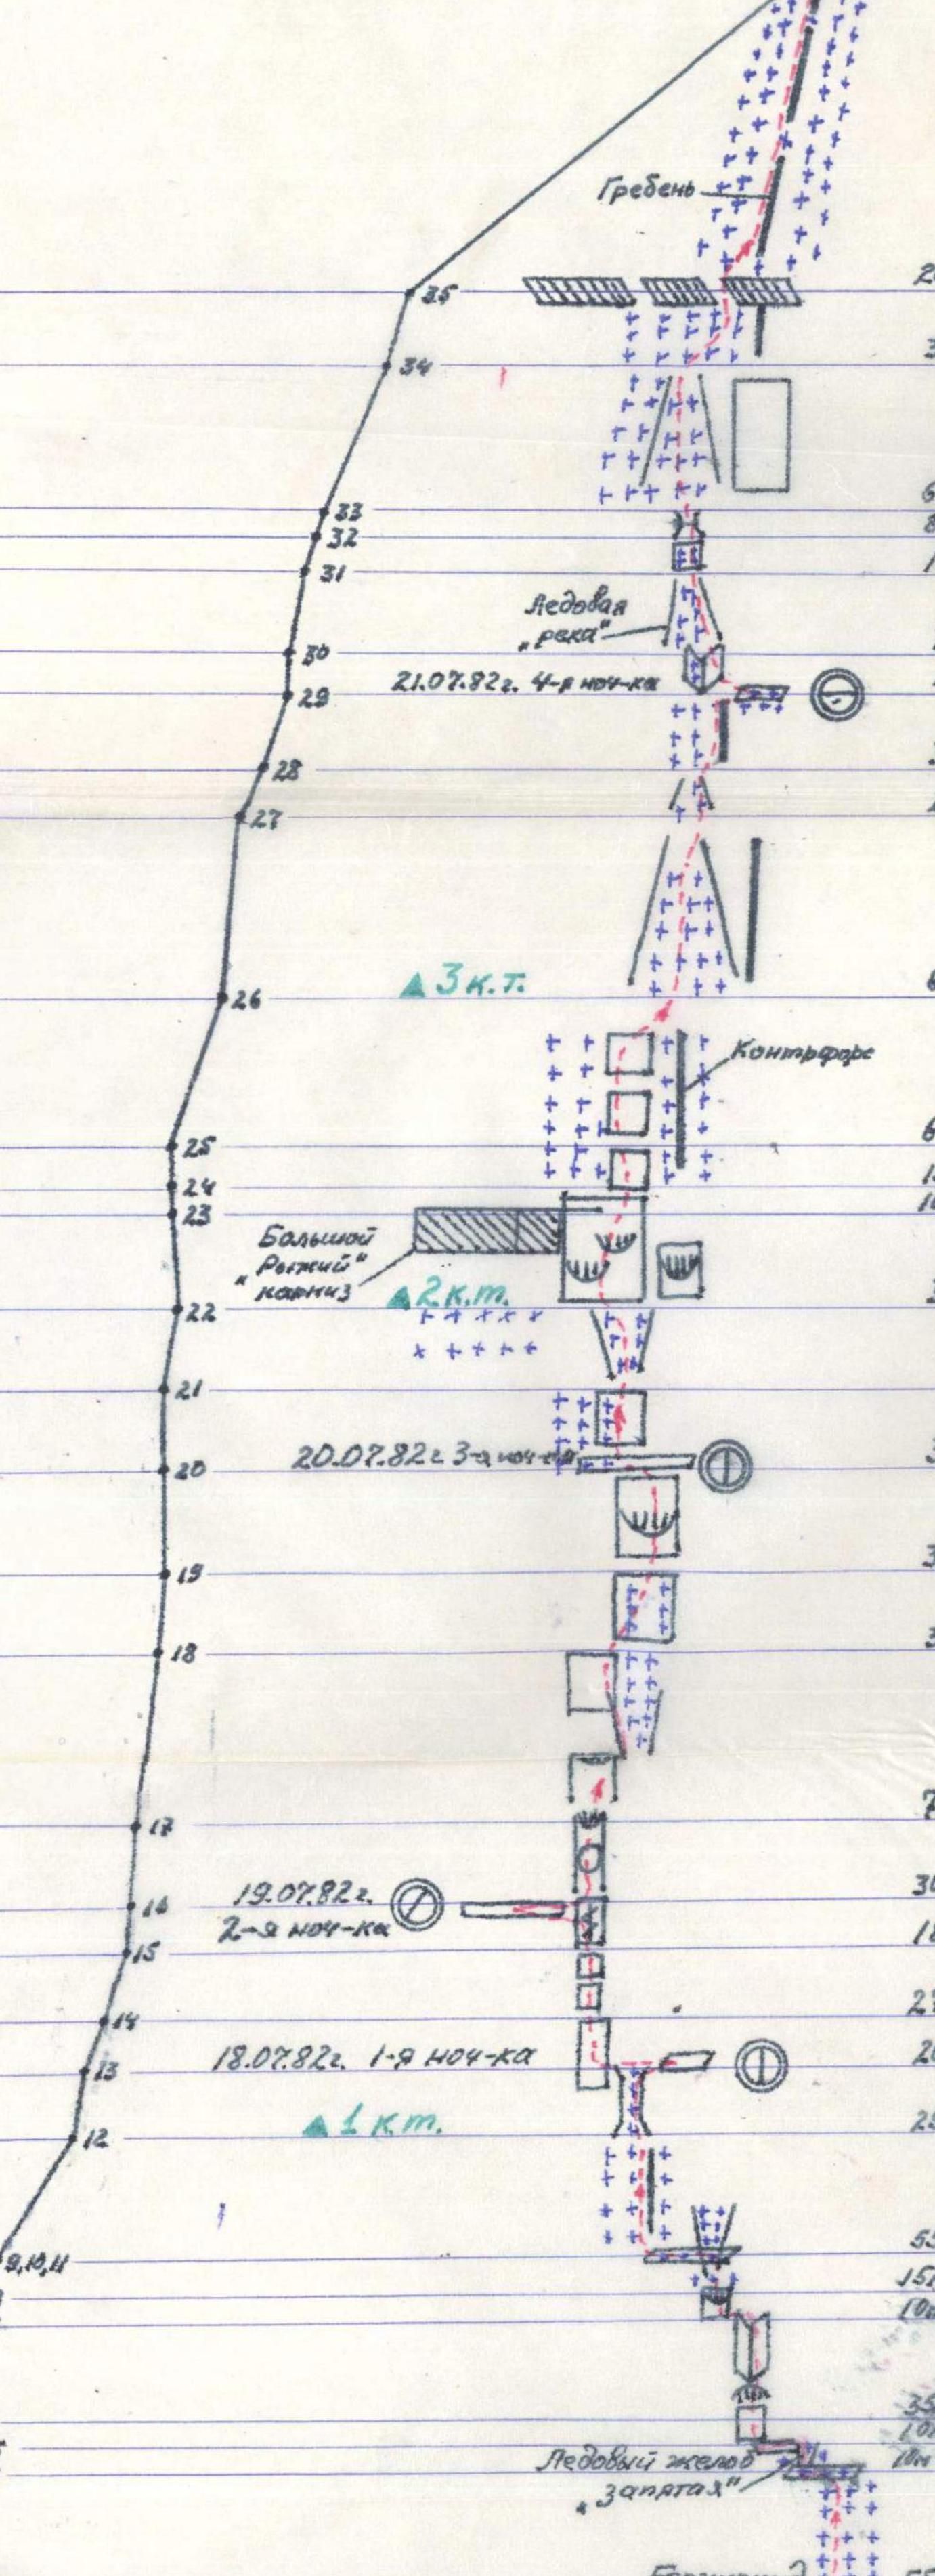 Гребень
35
34
33
32
31
Ледовая
„река“
30
21.07.82г. 4-я ноч-ка
29
28
27
▲ 3 к.т.
26
Контрфорс
25
24
23
Большой
„Рыжий“
карниз
▲ 2 к.т.
22
21
20.07.82г 3-я ноч-ка
20
19
18
17
19.07.82г.
2-я ноч-ка
16
15
14
18.07.82г. 1-я ноч-ка
13
▲ 1 к.т.
12
9,10,11
Ледовый желоб
„запятая“